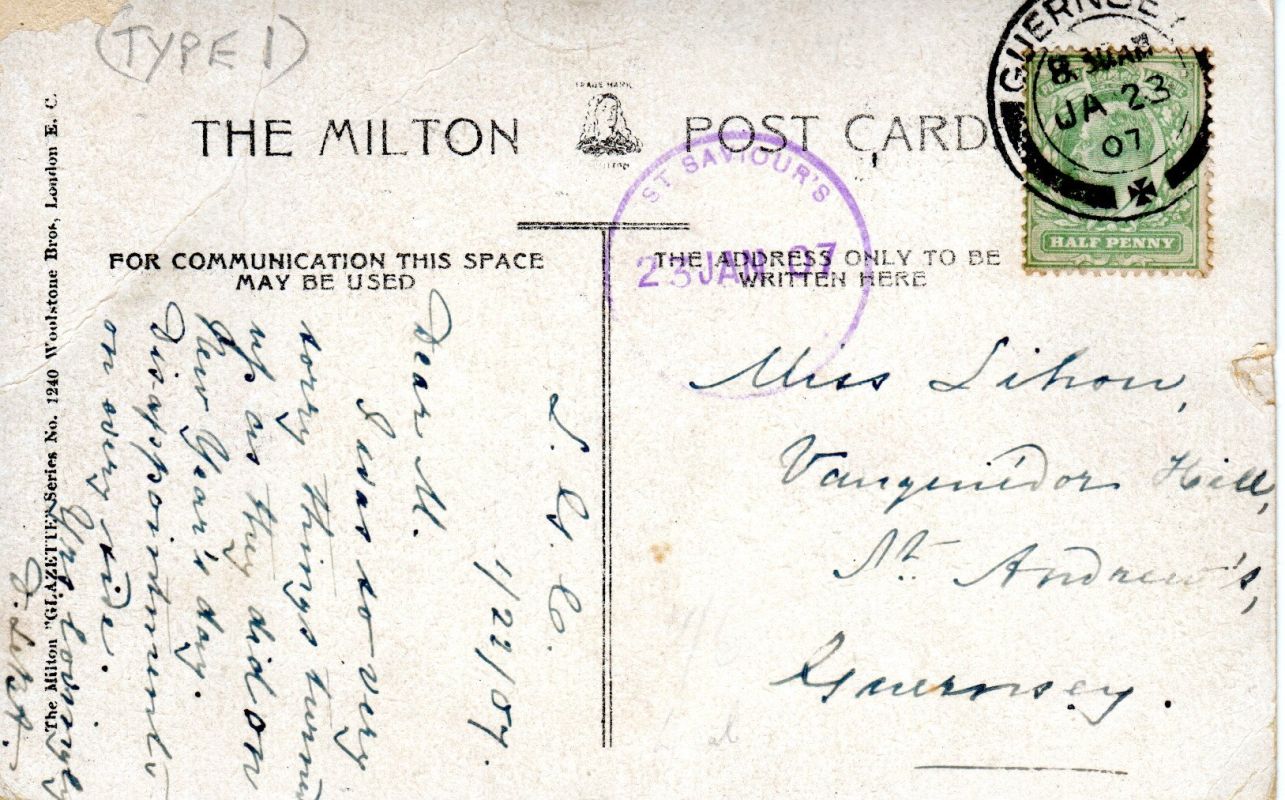 (TYPE 1)
THE MILTON POST CARD
TRADE MARK
GUERNSEY
8.30AM
JA 23
07
HALF PENNY
ST SAVIOUR'S
23 JAN 07
FOR COMMUNICATION THIS SPACE
MAY BE USED
THE ADDRESS ONLY TO BE
WRITTEN HERE
The Milton "GLAZETTE" Series No. 1240 Woolstone Bros., London E. C.
1/22/07.
Dear M.
I was so very
sorry things turned
up as they did on
New Year's day.
Disappointments
on very side.
Yrs lovingly
Miss Lihou,
Hill,
St. Andrew's,
Guernsey.